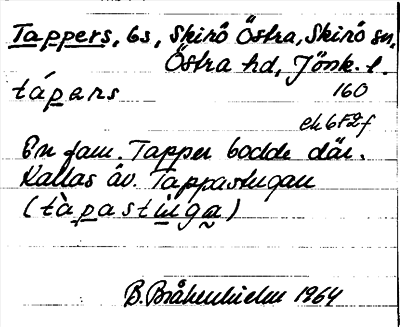 Tappers, bs, Skirö Östra, Skirö sn,
Östra hd, Jönk. l.
tápers 160
ek 6F2f
En fam. Tapper bodde där.
Kallas äv. Tappastugan
(tàpastuga)
B. Bråkenhielm 1964